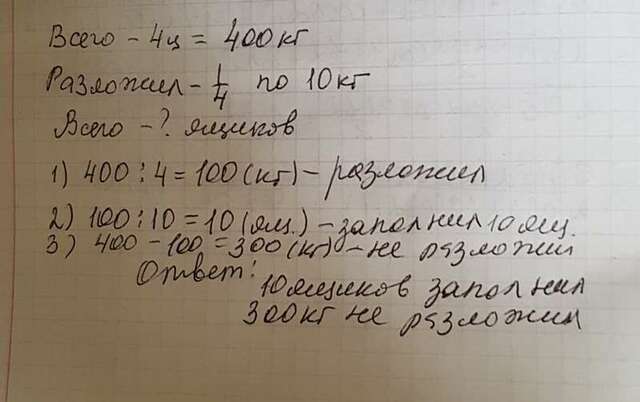 Всего - 4ц = 400кг
Разложил - 1/4 по 10кг
Всего - ? ящиков
1) 400 : 4 = 100 (кг) - разложил
2) 100 : 10 = 10 (ящ.) - заполнил 10 ящ.
3) 400 - 100 = 300 (кг) - не разложил
Ответ:
10 ящиков заполнил
300кг не разложил